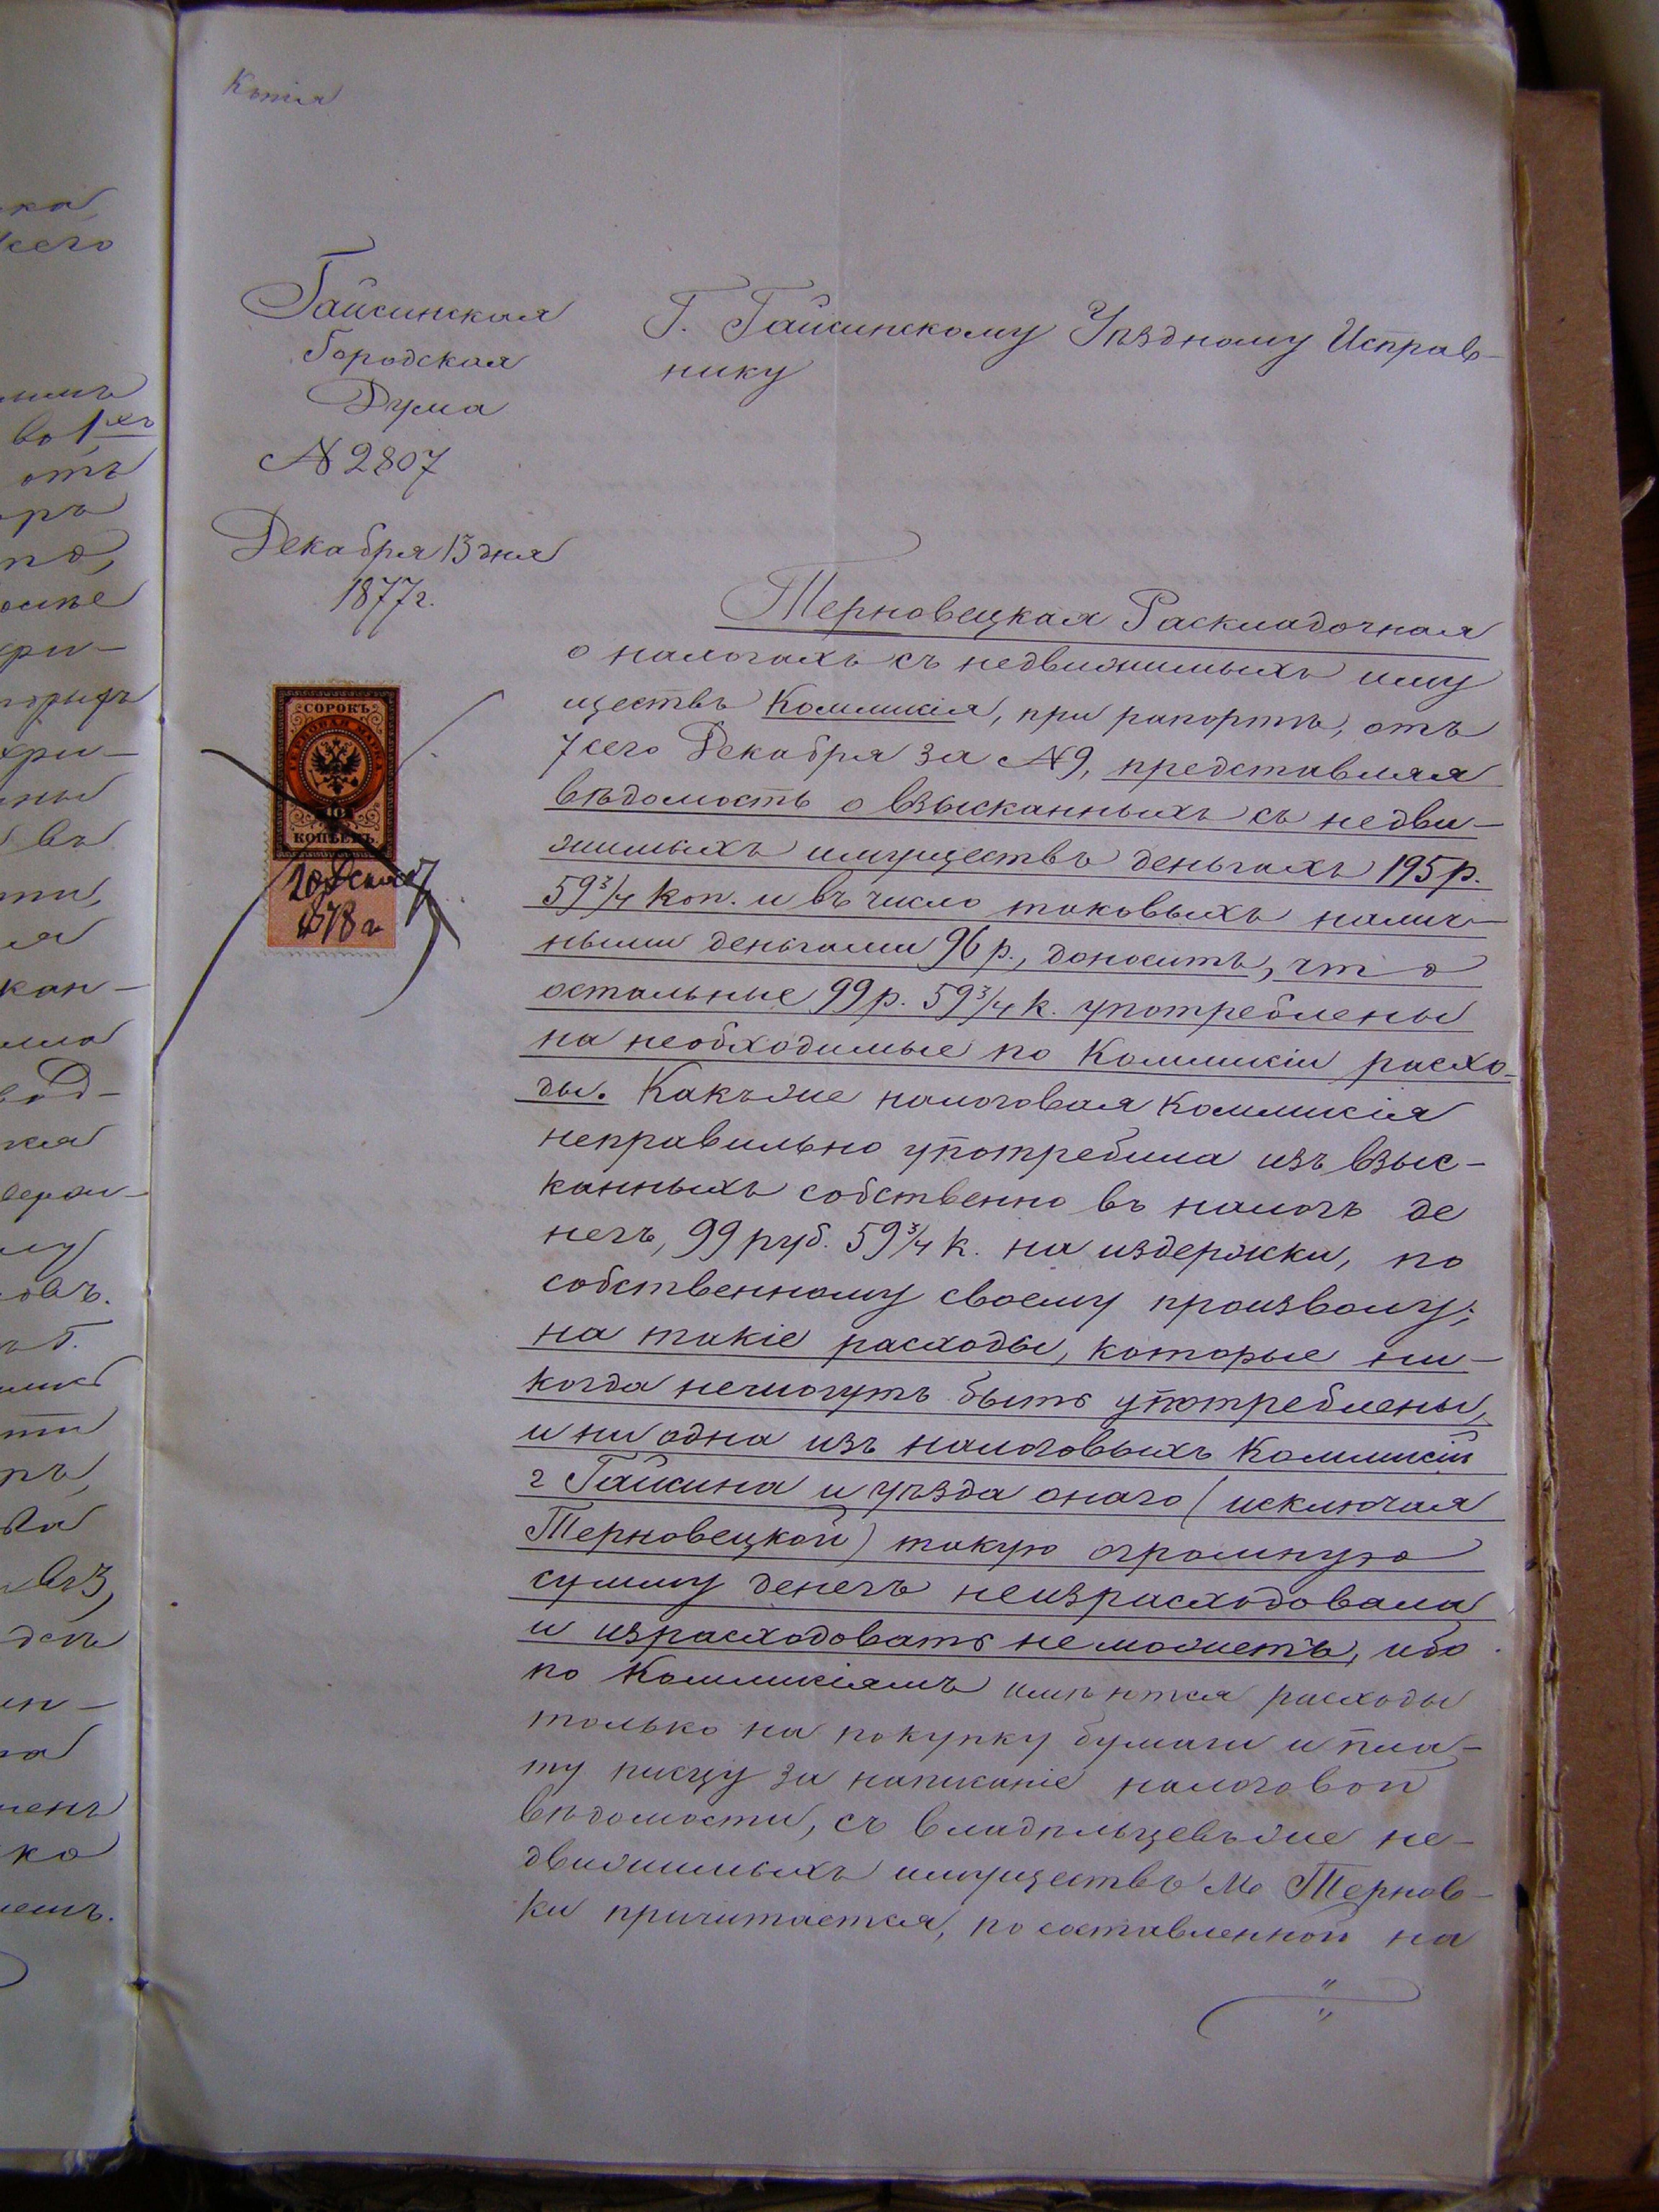 Копія
Гайсинская
Городская
Дума
№ 2807
Декабря 13 дня
1877 г.
Г. Гайсинскому Уѣздному Исправ-
нику
СОРОКЪ
ГЕРБОВАЯ МАРКА
40
КОПѢЕКЪ
1878 г
Терновецкая Раскладочная
о налогахъ съ недвижимыхъ иму
ществъ Коммисія, при рапортѣ, отъ
7 сего Декабря за № 9, представляя
вѣдомость о взысканныхъ съ недви-
жимыхъ имуществъ деньгахъ 195 р.
59 3/4 коп. и въ число таковыхъ налич-
ными деньгами 96 р., доноситъ, что
остальные 99 р. 59 3/4 к. употреблены
на необходимые по Коммисіи расхо-
ды. Какъ же налоговая Коммисія
неправильно употребила изъ взыс-
канныхъ собственно въ налогъ де
негъ, 99 руб. 59 3/4 к. на издержки, по
собственному своему произволу;
на такіе расходы, которые ни-
когда немогутъ быть употреблены,
и ни одна изъ налоговыхъ Коммисій
г Гайсина и уѣзда онаго (исключая
Терновецкой) такую огромную
сумму денегъ неизрасходовала
и израсходовать неможетъ, ибо
по Коммисіямъ имѣются расходы
только на покупку бумаги и пла-
ту писцу за написаніе налоговой
вѣдомости, съ владѣльцевъ же не-
движимыхъ имуществъ М. Тернов-
ки причитается, по составленной на